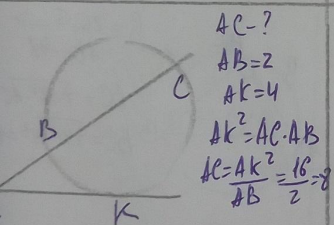 AC-?
AB=2
C
AK=4
B
AK²=AC·AB
AC=AK²/AB=16/2=8
K